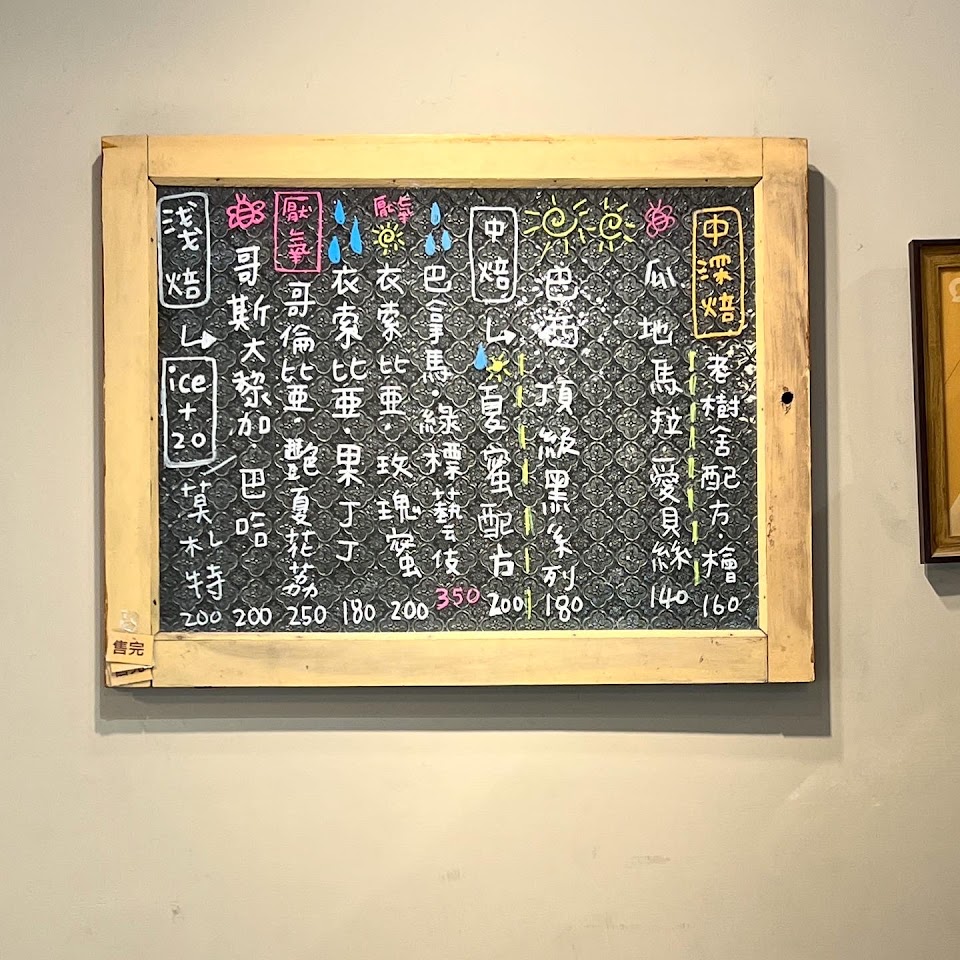 淺焙
ice + 20
莫札特 200
哥斯大黎加 巴哈 200
厭氧
哥倫比亞·艷夏花荔 250
衣索比亞·果丁丁 180
厭氧
衣索比亞·玫瑰蜜 200
巴拿馬·綠標藝伎 350
中焙
夏蜜配方 200
巴西·頂級黑系列 180
瓜地馬拉 愛貝絲 140
中深焙
老樹舍配方·檜 160
售完